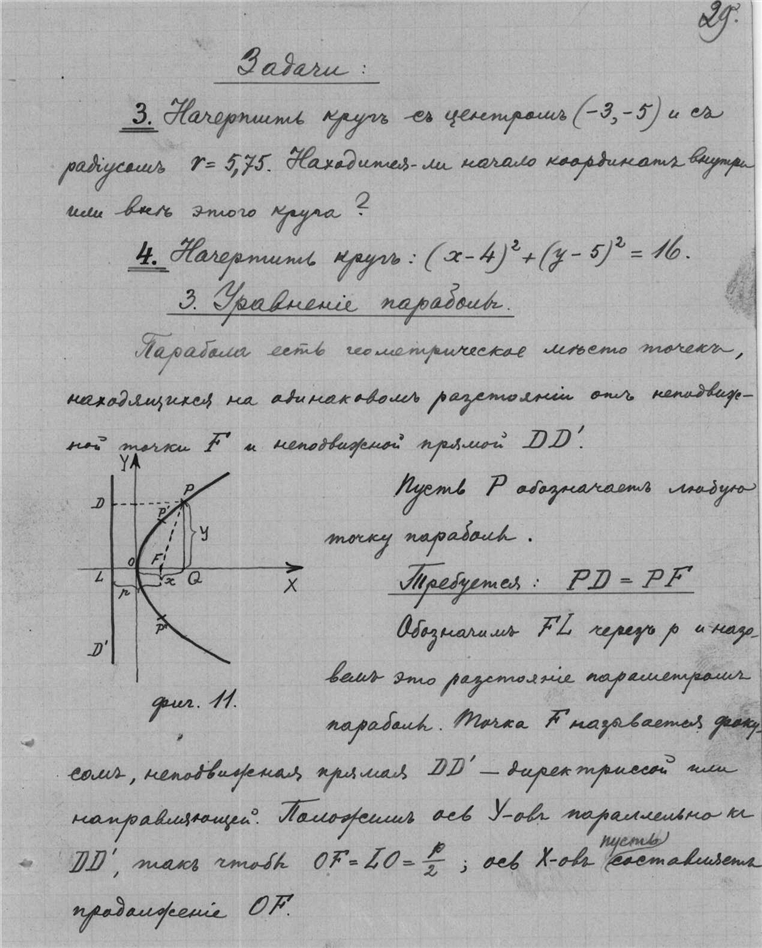 29.
Задачи:
3. Начертить кругъ съ центромъ (-3,-5) и съ
радіусомъ r = 5,75. Находится-ли начало координатъ внутри
или внѣ этого круга?
4. Начертить кругъ: (x-4)² + (y-5)² = 16.
3. Уравненіе параболы.
Парабола есть геометрическое мѣсто точекъ,
находящихся на одинаковомъ разстояніи отъ неподвиж-
ной точки F и неподвижной прямой DD'.
Y
D
P'
P
y
O
F
L
x
Q
X
p
P''
D'
фиг. 11.
Пусть P обозначаетъ любую
точку параболы.
Требуется: PD = PF
Обозначимъ FL черезъ p и назо-
вемъ это разстояніе параметромъ
параболы. Точка F называется фоку-
сомъ, неподвижная прямая DD' — директриссой или
направляющей. Положимъ ось Y-овъ параллельно къ
DD', такъ чтобы OF = LO = p/2 ; ось X-овъ пусть составляетъ
продолженіе OF.